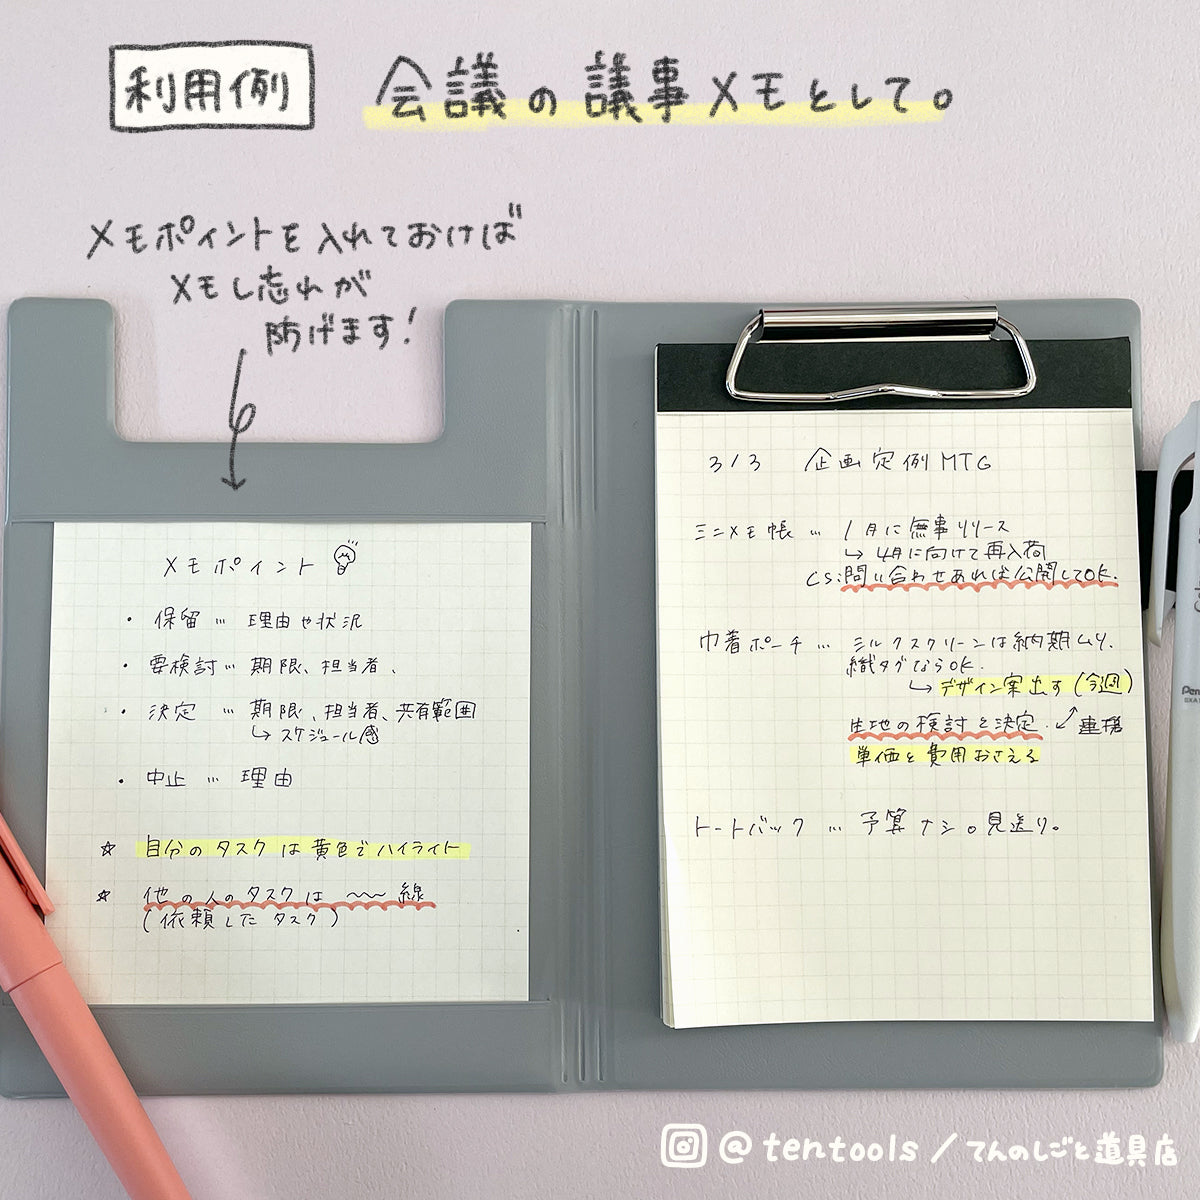 利用例 会議の議事メモとして。
メモポイントを入れておけば
メモし忘れが
防げます!
メモポイント
・保留… 理由や状況
・要検討… 期限、担当者、
・決定 … 期限、担当者、共有範囲
↳ スケジュール感
・中止 … 理由
☆ 自分のタスクは黄色でハイライト
☆ 他の人のタスクは 〜〜 線
(依頼したタスク)
3/3 企画定例MTG
ミニメモ帳 … 1月に無事リリース
↳ 4月に向けて再入荷
CS:問い合わせあれば公開してOK.
巾着ポーチ … シルクスクリーンは納期ムリ.
織タグならOK.
↳ デザイン案出す(今週)
生地の検討と決定. ↙↗ 連携
単価と費用おさえる
トートバック … 予算ナシ。見送り。
Pen
@tentools/てんのしごと道具店